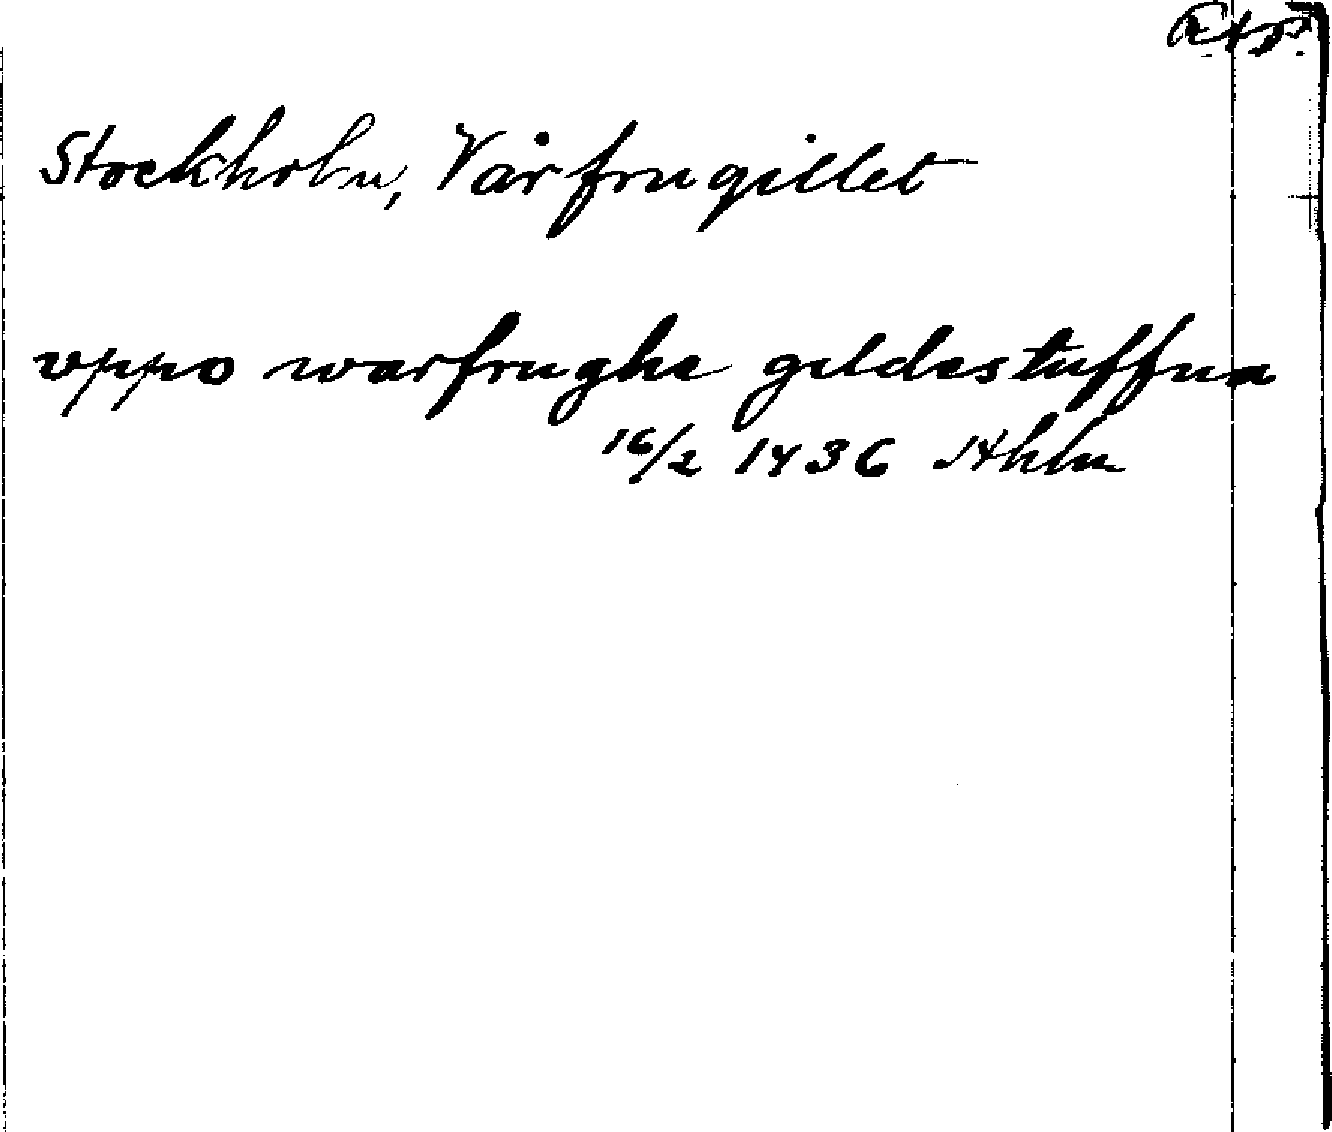 Stockholm, Vårfrugillet
vppo warfrughe gildestuffua
16/2 1436 Sthlm